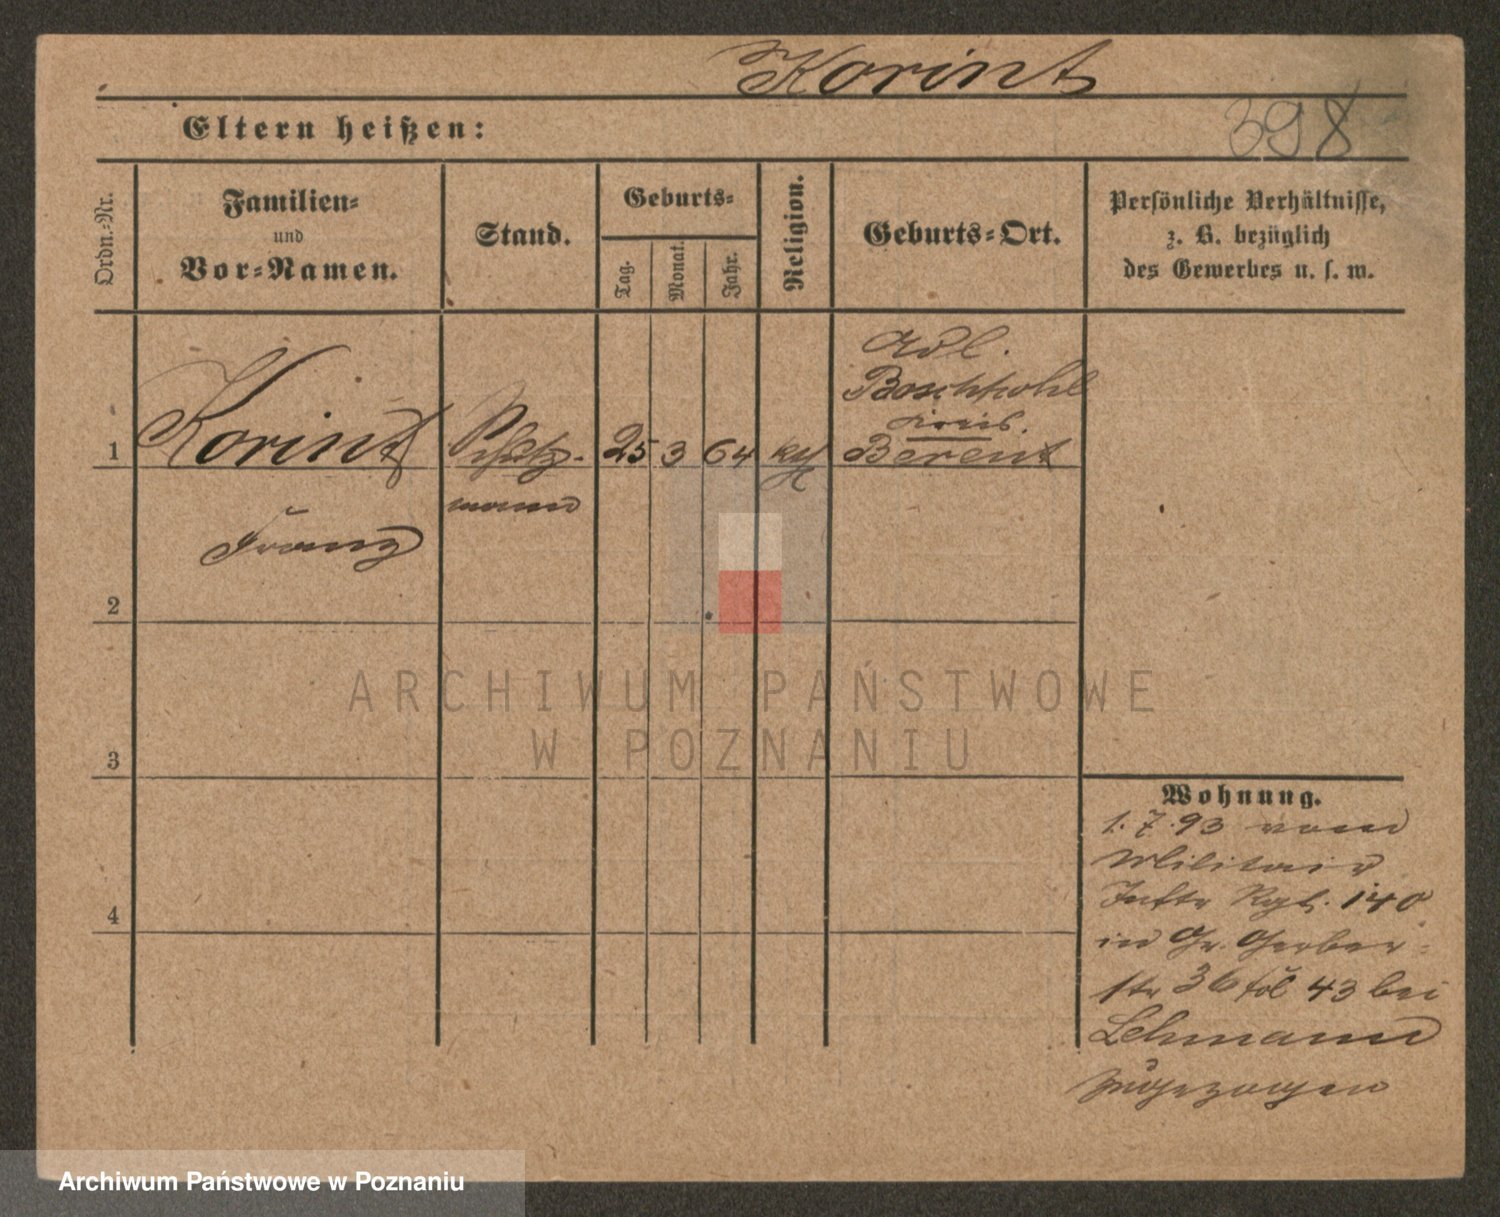 Korint
398
Eltern heißen:
Ordn.-Nr.
Familien-
und
Vor-Namen.
Stand.
Geburts-
Tag.
Monat.
Jahr.
Religion.
Geburts-Ort.
Persönliche Verhältnisse,
z. B. bezüglich
des Gewerbes u. s. w.
1
Korint
Franz
Schutz-
mann
25 3 64
kth
Adl.
Boschpohl
Kreis.
Berent
2
3
4
Wohnung.
1. 7. 93 vom
Militair
Inftr Rgt. 140
in Gr. Gerber-
str 36 fol 43 bei
Lehmann
zugezogen
ARCHIWUM PAŃSTWOWE
W POZNANIU
Archiwum Państwowe w Poznaniu